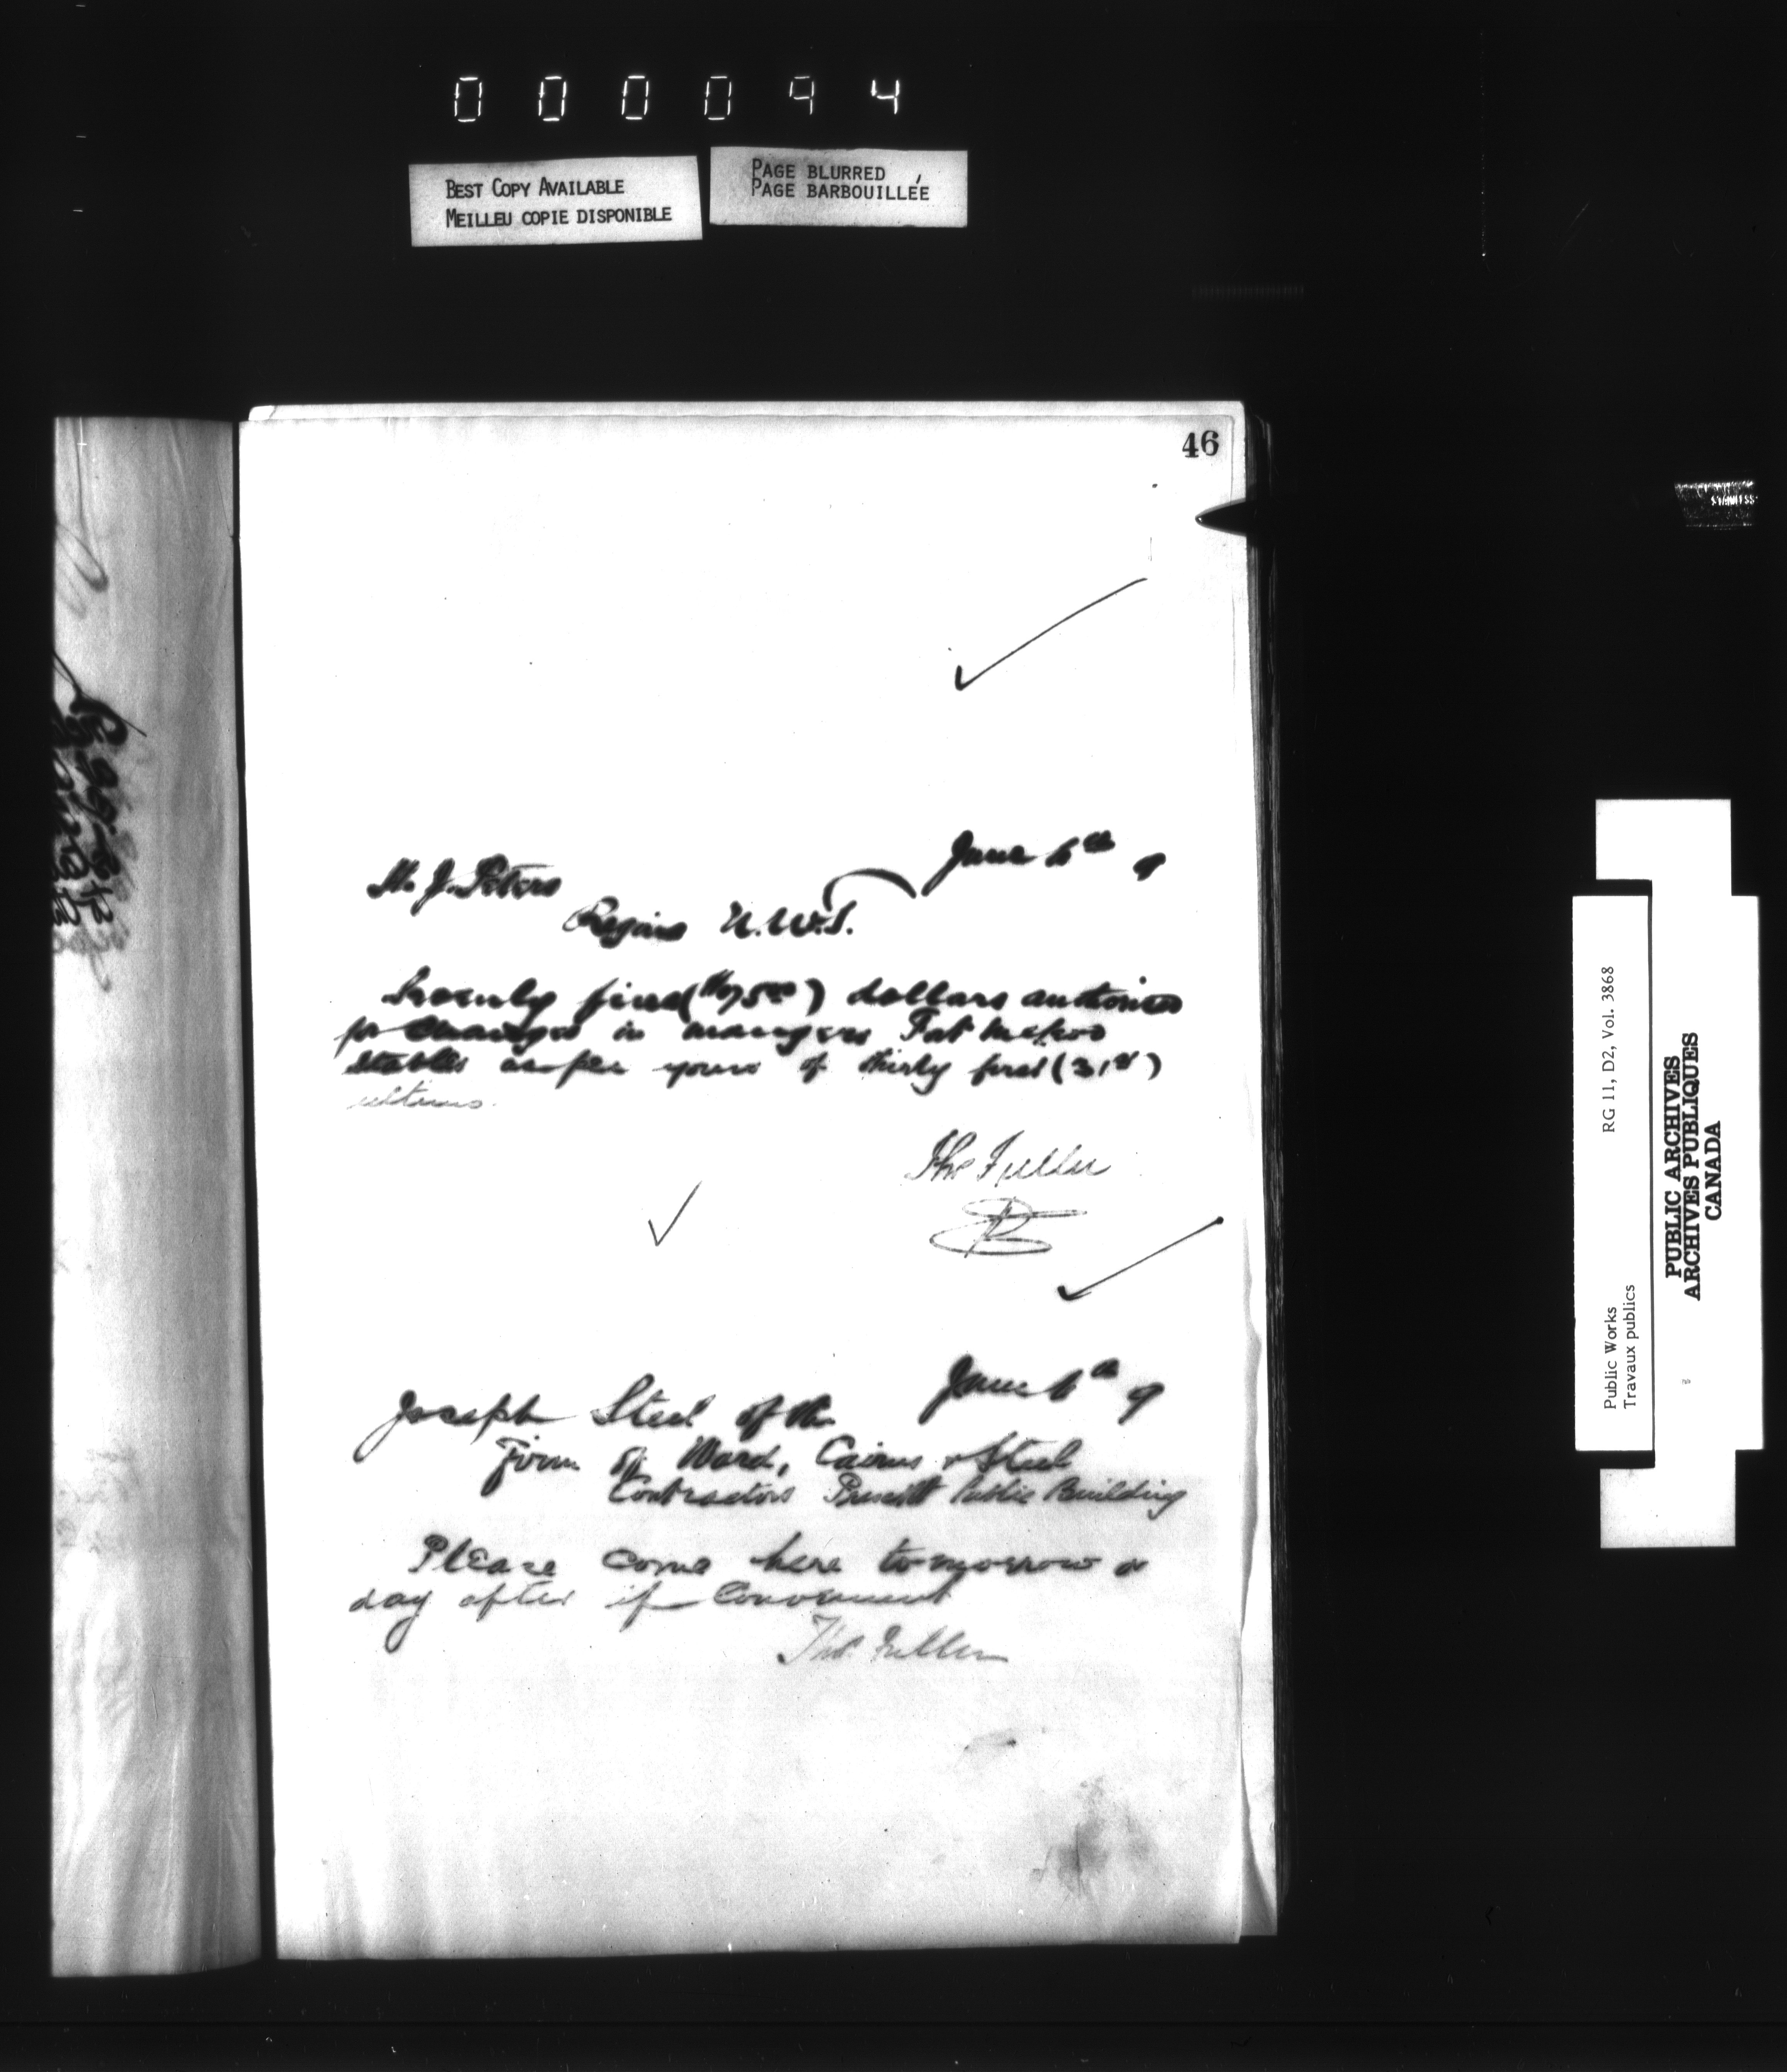 0 0 0 0 9 4
BEST COPY AVAILABLE
MEILLEU COPIE DISPONIBLE
PAGE BLURRED
PAGE BARBOUILLÉE
46
June 6th 9
W. J. Peters
Regina N.W.T.
Seventy five ($75.00) dollars authorized
for changes in mangers Fort
Stables as per yours of thirty first (31st)
ultimo.
Thos Fuller
June 6th 9
Joseph Steel of the
Firm of Ward, Cairns & Steel
Contractors Public Building
Please come here tomorrow or
day after if convenient
Thos Fuller
Public Works
Travaux publics
RG 11, D2, Vol. 3868
PUBLIC ARCHIVES
ARCHIVES PUBLIQUES
CANADA
STAINLESS